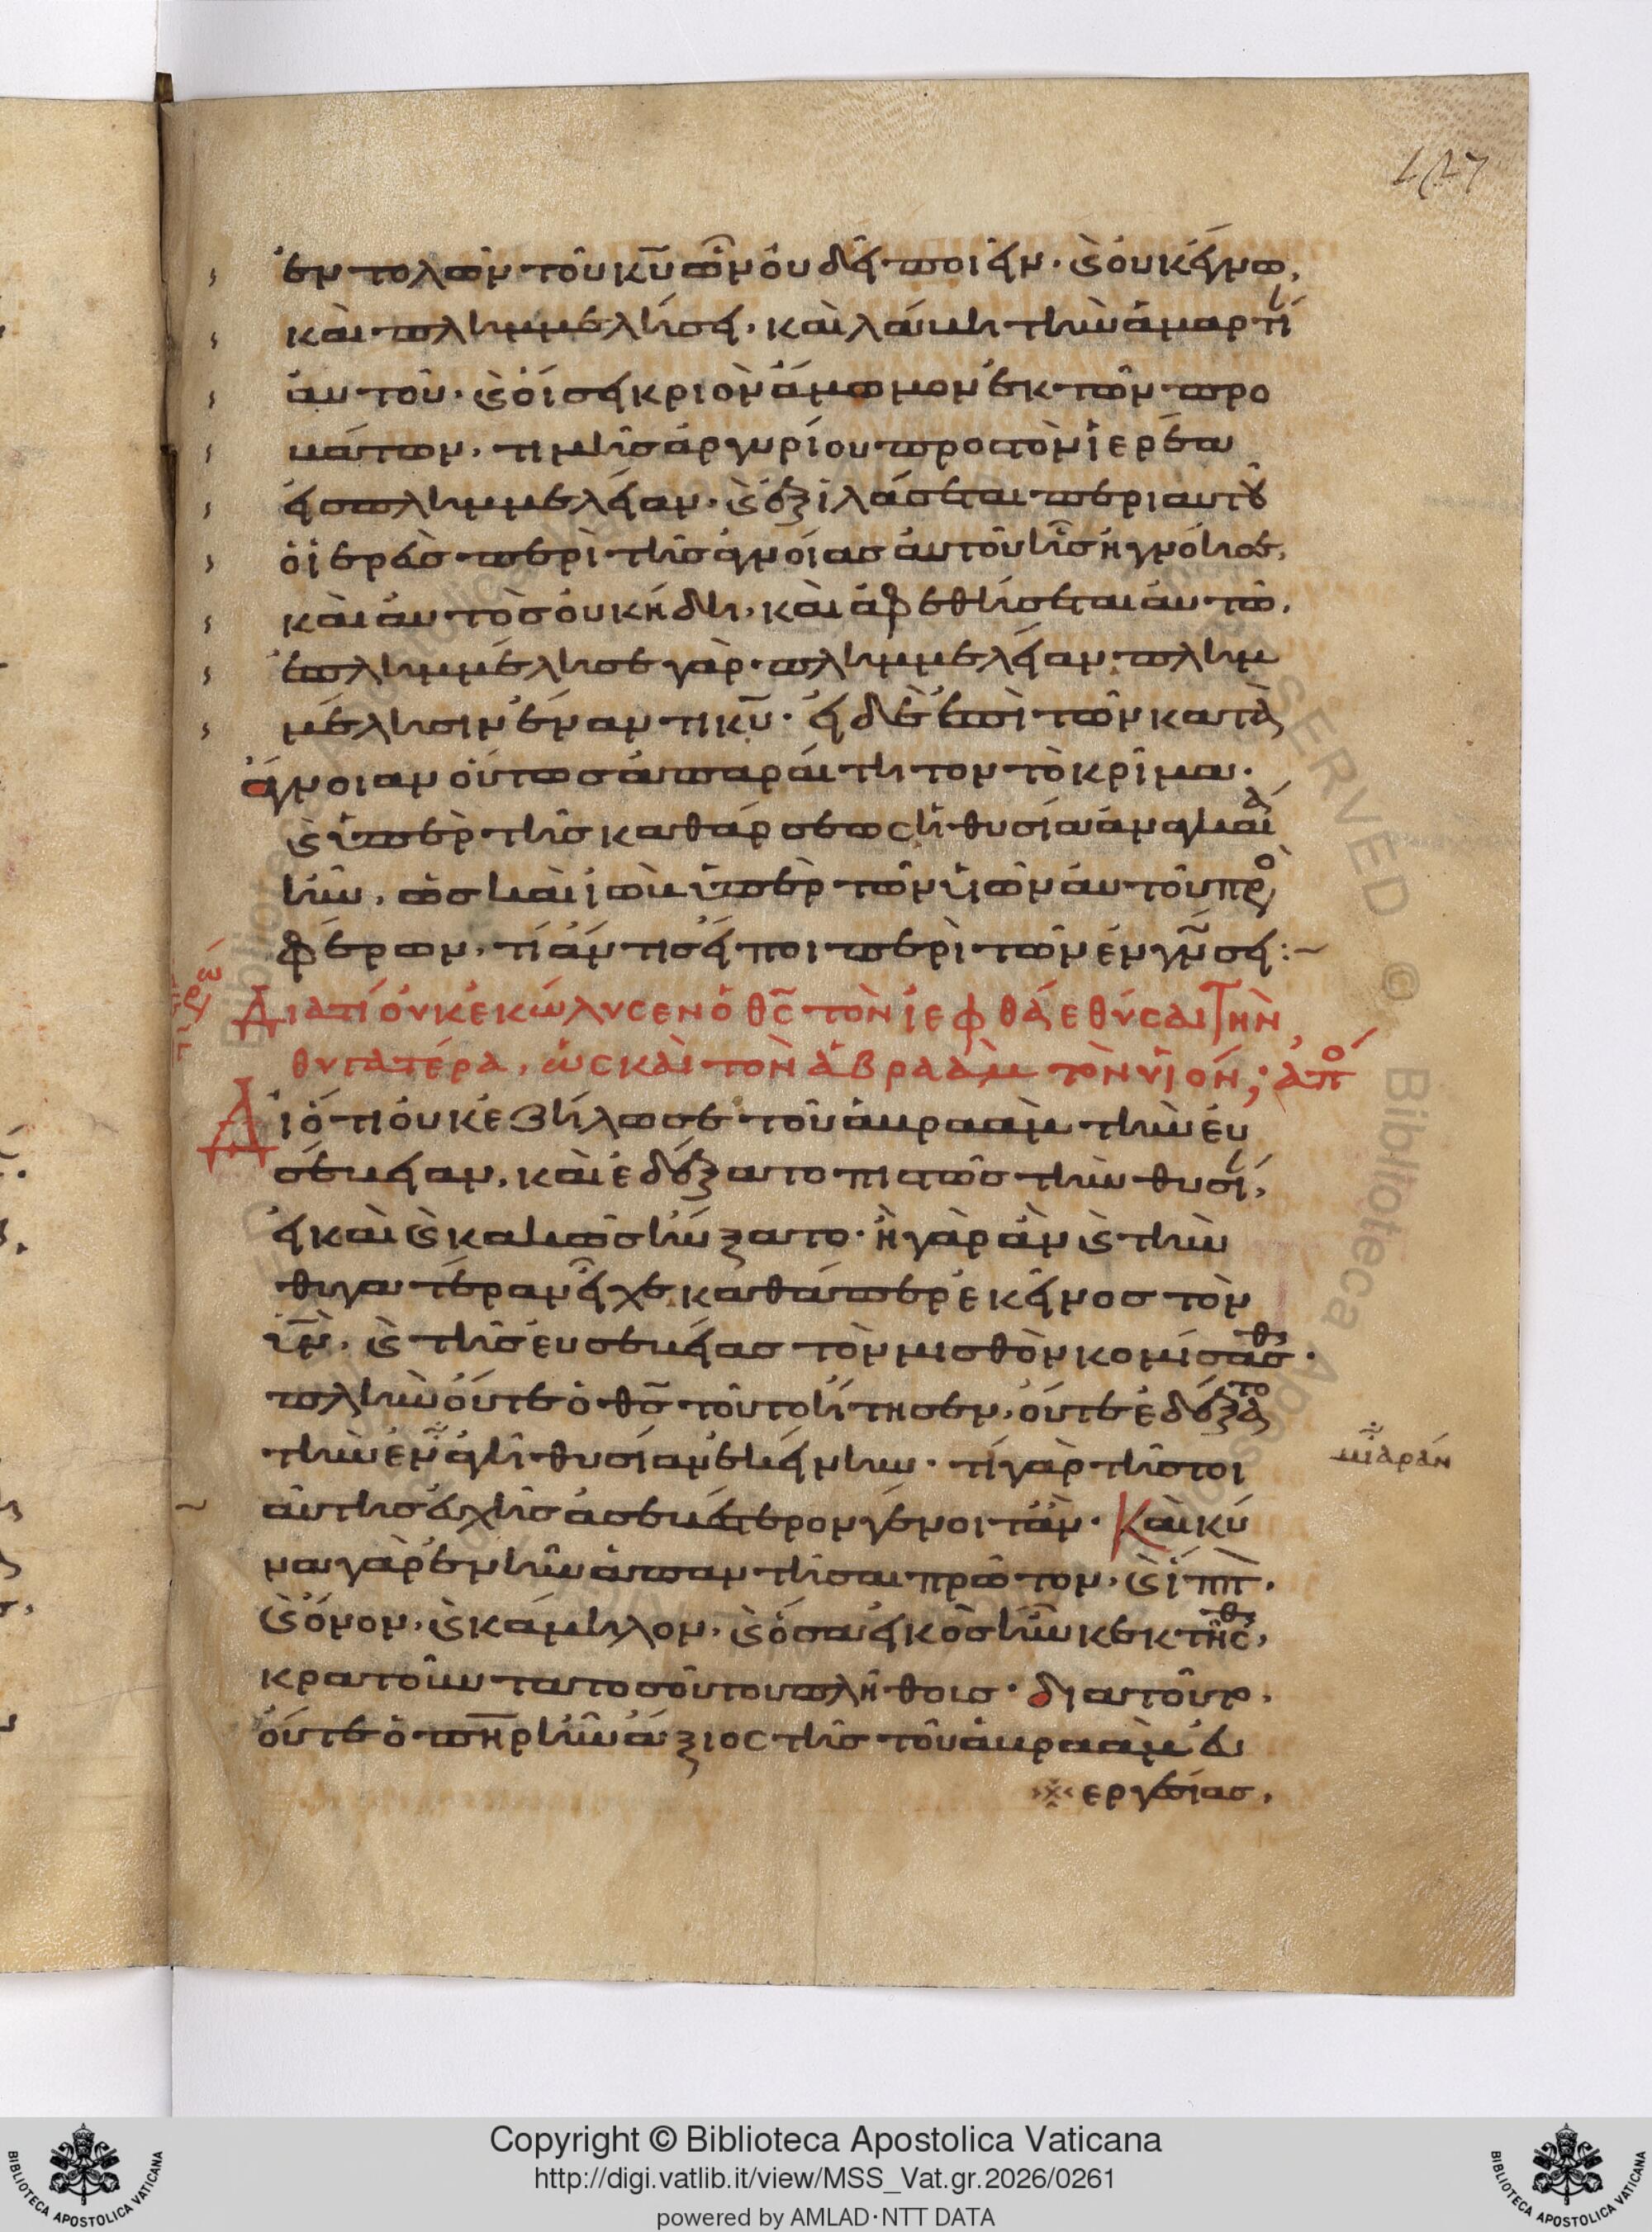 127
ἐντολῶν τοῦ κυ̅ ὧν οὐ δεῖ ποιεῖν· καὶ οὐκ ἔγνω,
καὶ πλημμελήσει, καὶ λάβη τὴν ἁμαρτί
αὐτοῦ· καὶ οἴσει κριὸν ἄμωμον ἐκ τῶν προ
βάτων, τιμῆς ἀργυρίου προς τὸν ἱερέα
εἰς πλημμέλειαν· καὶ ἐξιλάσεται περι αυτοῦ
ὁ ἱερεὺς περὶ τῆς ἀγνοίας αὐτοῦ ἧς ἠγνόησε,
καὶ αὐτὸς οὐκ ἤδη, καὶ ἀφεθήσεται αὐτῶ.
ἐπλημμέλησε γὰρ πλημμέλειαν πλημ
μέλησιν ἔναντι κυ̅· εἰ δὲ ἐπὶ τῶν κατὰ
ἄγνοιαν οὕτως ἀπαραίτητον τὸ κρῖμα·
καὶ ὑπὲρ τῆς καθάρσεως ἡ θυσία ἀναγκαί
ἦν, ὡς καὶ ἰὼβ ὑπὲρ τῶν υἱῶν αὐτοῦ προ
φέρων, τί ἄν τις εἴποι περὶ τῶν ἐν γνώσει:~
Διατί οὐκ ἐκώλυσεν ὁ θς̅ τὸν ἰεφθάε θῦσαι τὴν
θυγατέρα, ὡς καὶ τὸν ἀβραὰμ τὸν υἱόν; ἀπό
Διότι οὐκ ἐζήλωσε τοῦ ἀβραὰμ τὴν εὐ
σέβειαν, καὶ ἐδέξατο πιστῶς τὴν θυσί,
εἰ καὶ καὶ κακῶς ηὔξατο· ἦ γὰρ ἂν καὶ τὴν
θυγατέραν εἶχε καθάπερ ἐκεῖνος τὸν
υἱ̅ν̅, καὶ τῆς εὐσεβείας τὸν μισθὸν κομίσασθ·
πλὴν οὔτε ὁ θς̅ τοῦτο ᾔτησεν, οὔτε ἐδέξατο
τὴν ἐναγῆ θυσίαν ἐκείνην· τί γὰρ τῆς τοι
αύτης εὐχῆς ἀσεβέστερον γένοιτ ἄν· Καὶ κύ
να γὰρ ἐνῆν ἀπαντῆσαι πρῶτον, καὶ ἵππ.
καὶ ὄνον, καὶ κάμηλον, καὶ ὅσα εἰκὸς ἦν κεκτῆσθ,
κρατοῦντα τοσούτου πλήθοις· διατοῦτο,
οὔτε ὁ πηρ̅ ἦν ἄξιος τῆς τοῦ ἀβραὰμ εὐ
εργεσίας,
μιαράν
Copyright © Biblioteca Apostolica Vaticana
http://digi.vatlib.it/view/MSS_Vat.gr.2026/0261
powered by AMLAD·NTT DATA
BIBLIOTECA APOSTOLICA VATICANA
BIBLIOTECA APOSTOLICA VATICANA